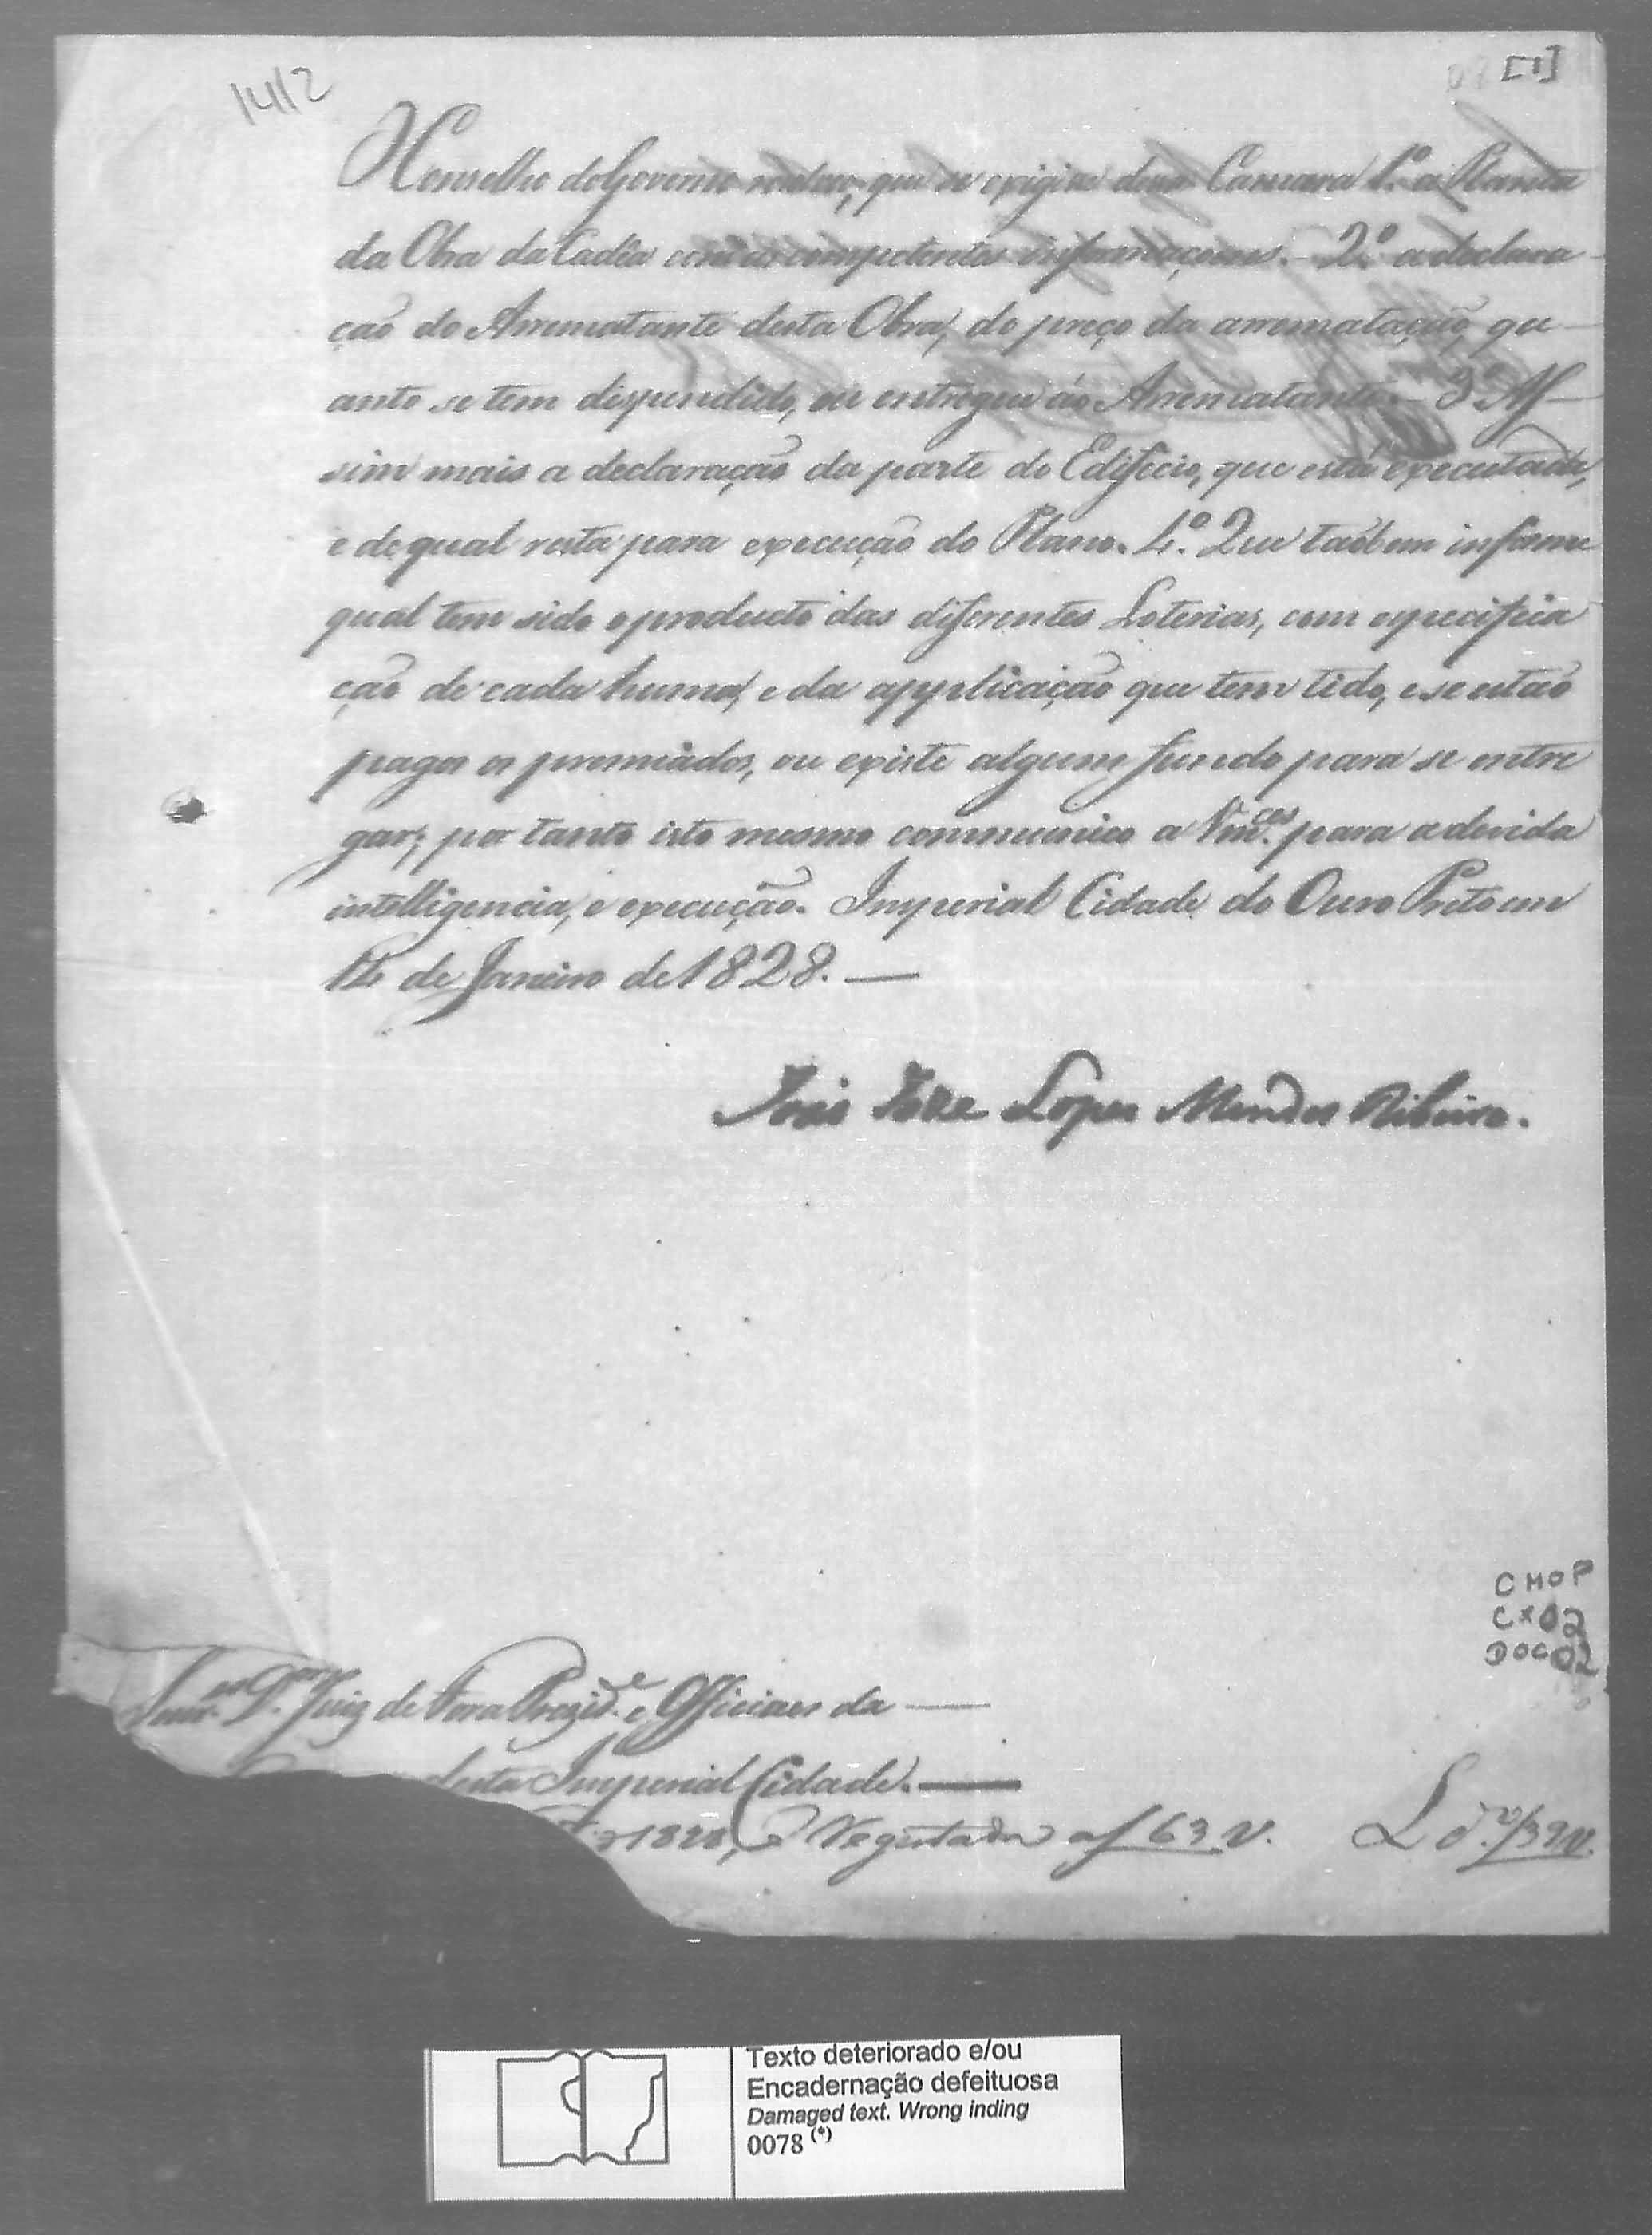 1412
[1]
O Conselho do Governo resolveo, que se exigisse dessa Camara 1.º a Planta
da Obra da Cadêa com as competentes informaçoens. - 2.º a declara-
ção do Arrematante desta Obra, do preço da arrematação, qu-
anto se tem dispendido, ou entregue áo Arrematante. - 3.º As-
sim mais a declaração da parte do Edificio, que está executada,
e do qual resta para execução do Plano. 4.º Que taõbem informe
qual tem sido o producto das diferentes Loterias, com especifica
ção de cada huma, e da applicação que tem tido, e se estão
pagos os premiados, ou existe algum fundo para se entre
gar; por tanto isto mesmo communico a Vm.ces para a devida
intelligencia, e execução. Imperial Cidade do Ouro Preto em
14 de Janeiro de 1828. —
João Joze Lopes Mendes Ribeiro.
CMOP
CX02
DOC02
Snr.es D.or Juiz de Fora Prezid.e e Officiaes da —
desta Imperial Cidade. —
1828, e Registada a f 63 v. L.º f 39 v.
Texto deteriorado e/ou
Encadernação defeituosa
Damaged text. Wrong inding
0078 (*)